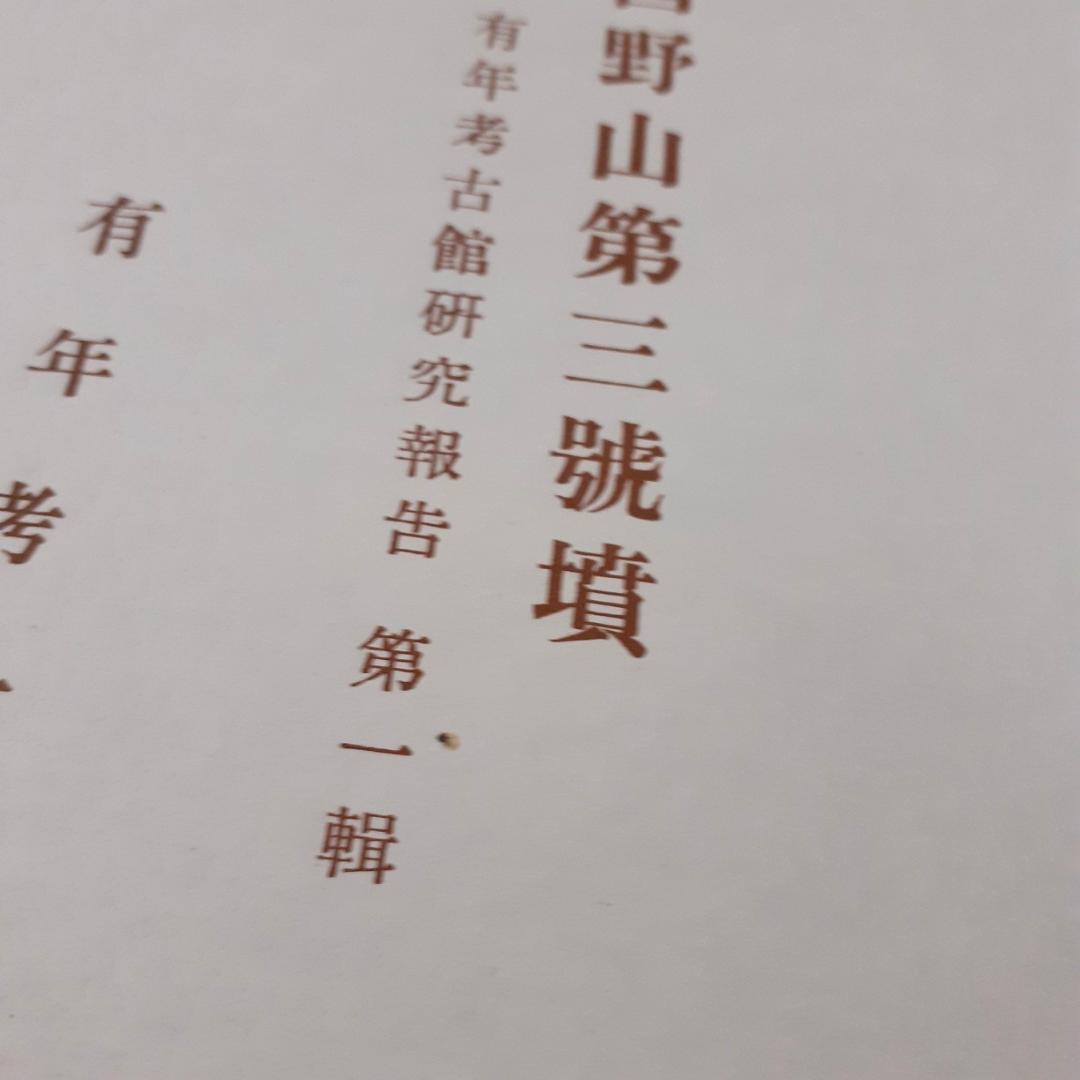 野山第三號墳
有年考古館研究報告 第一輯
有年考